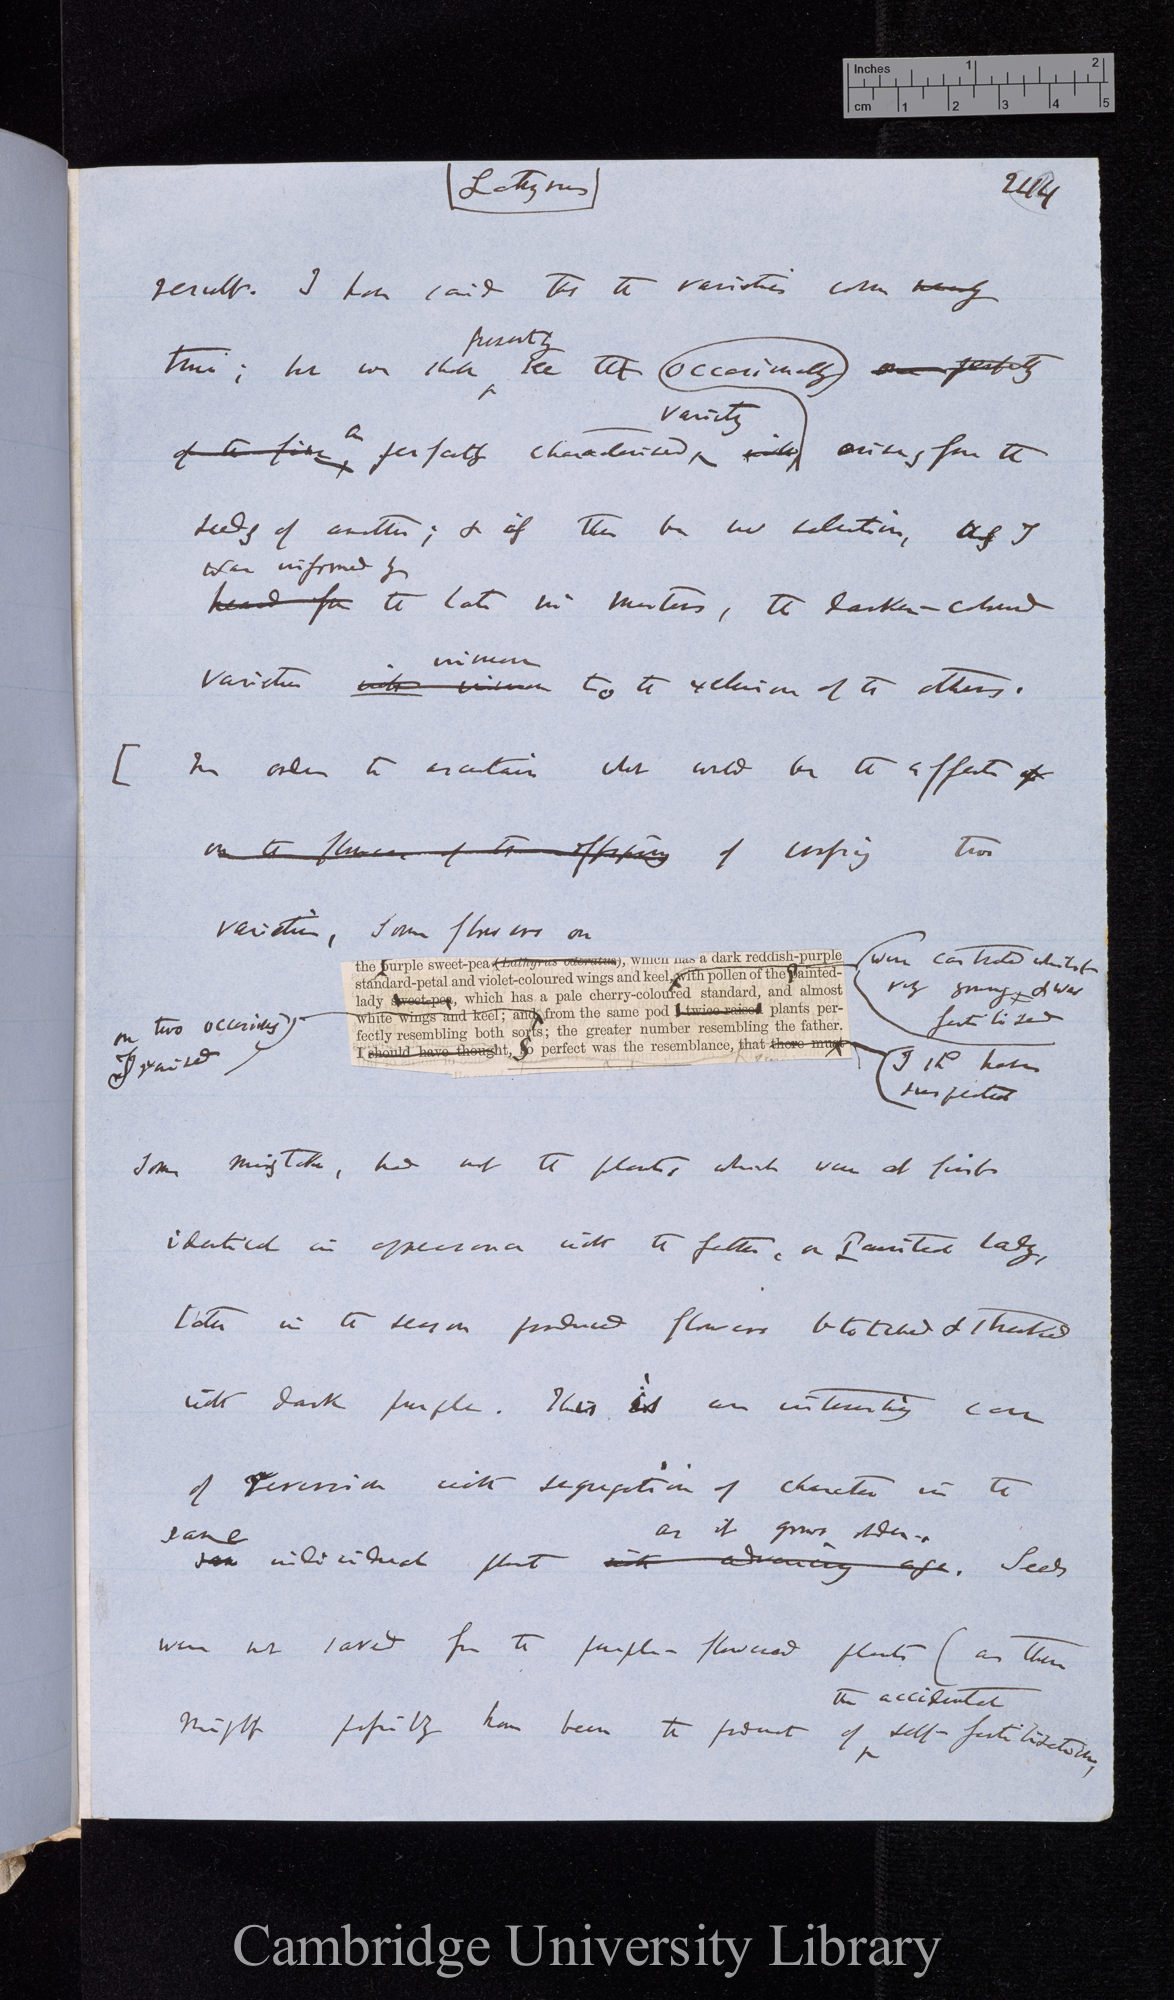 Inches 1 2
cm 1 2 3 4 5
[Lathyrus] 244
result. I have said that the varieties come nearly
true; but we shall presently see that occasionally one perfectly
of the five, a perfectly characterised variety with arising from the
seeds of another; & if there be no selection, as I
was informed by
heard from the late Mr Masters, the darker-coloured
varieties increase to the exclusion of the others.
[ In order to ascertain what would be the effects of
on the flowers of the offspring of crossing two
varieties, some flowers on
the purple sweet-pea (Lathyrus odoratus), which has a dark reddish-purple
standard-petal and violet-coloured wings and keel, with pollen of the Painted-
lady sweet-pea, which has a pale cherry-coloured standard, and almost
white wings and keel; and from the same pod I twice raised plants per-
fectly resembling both sorts; the greater number resembling the father.
I should have thought, So perfect was the resemblance, that there must
were castrated whilst
very young, & was
fertilised
on two occasions
I raised
I shd have
suspected
some mistake, had not the plants, which were at first
identical in appearance with the father, or Painted lady,
later in the season produced flowers blotched & streaked
with dark purple. This is an interesting case
of reversion with segregation of character in the
same individual plant with advancing age. as it grows older. Seeds
were not saved from the purple-flowered plants (as these
might possibly have been the product of the accidental self-fertilisation,
Cambridge University Library